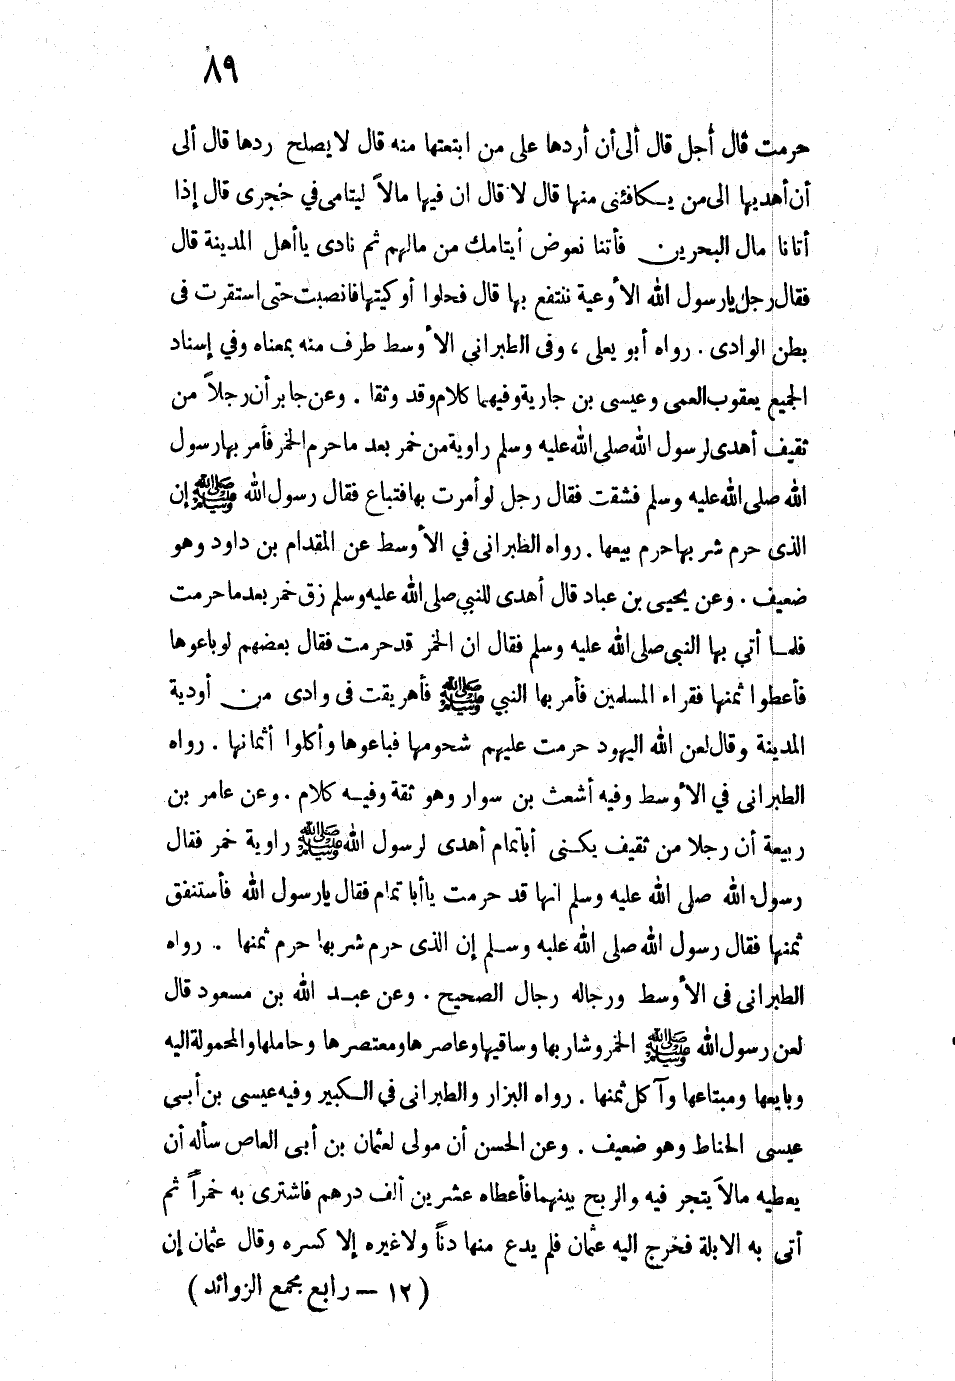 ٨٩
حرمت قال أجل قال ألى أن أردها على من ابتعتها منه قال لا يصلح ردها قال ألى
أن أهديها الى من يكافئنى منها قال لا قال ان فيها مالاً ليتامى في حجرى قال إذا
أتانا مال البحرين فأتنا نعوض أيتامك من مالهم ثم نادى يا أهل المدينة قال
فقال رجل يارسول الله الأوعية ننتفع بها قال فحلوا أوكيتها فانصبت حتى استقرت فى
بطن الوادى . رواه أبو يعلى ، وفى الطبراني الأوسط طرف منه بمعناه وفي إسناد
الجميع يعقوب العمى وعيسى بن جارية وفيهما كلام وقد وثقا . وعن جابر أن رجلاً من
ثقيف أهدى لرسول الله صلى الله عليه وسلم راوية من خمر بعد ما حرم الخمر فأمر بها رسول
الله صلى الله عليه وسلم فشقت فقال رجل لو أمرت بها فتباع فقال رسول الله ﷺ إن
الذى حرم شربها حرم بيعها . رواه الطبرانى في الأوسط عن المقدام بن داود وهو
ضعيف . وعن يحيى بن عباد قال أهدى للنبي صلى الله عليه وسلم زق خمر بعد ما حرمت
فلما أتي بها النبى صلى الله عليه وسلم فقال ان الخمر قد حرمت فقال بعضهم لو باعوها
فأعطوا ثمنها فقراء المسلمين فأمر بها النبي ﷺ فأهريقت فى وادى من أودية
المدينة وقال لعن الله اليهود حرمت عليهم شحومها فباعوها وأكلوا أثمانها . رواه
الطبرانى في الأوسط وفيه أشعث بن سوار وهو ثقة وفيه كلام . وعن عامر بن
ربيعة أن رجلا من ثقيف يكنى أباتمام أهدى لرسول الله ﷺ راوية خمر فقال
رسول الله صلى الله عليه وسلم انها قد حرمت يا أبا تمام فقال يارسول الله فأستنفق
ثمنها فقال رسول الله صلى الله عليه وسلم إن الذى حرم شربها حرم ثمنها . رواه
الطبرانى فى الأوسط ورجاله رجال الصحيح . وعن عبد الله بن مسعود قال
لعن رسول الله ﷺ الخمر وشاربها وساقيها وعاصرها ومعتصرها وحاملها والمحمولة اليه
وبايعها ومبتاعها وآكل ثمنها . رواه البزار والطبرانى في الكبير وفيه عيسى بن أبى
عيسى الحناط وهو ضعيف . وعن الحسن أن مولى لعثمان بن أبى العاص سأله أن
يعطيه مالاً يتجر فيه والربح بينهما فأعطاه عشرين ألف درهم فاشترى به خمراً ثم
أتى به الابلة فخرج اليه عثمان فلم يدع منها دناً ولا غيره إلا كسره وقال عثمان إن
(١٢ — رابع مجمع الزوائد)